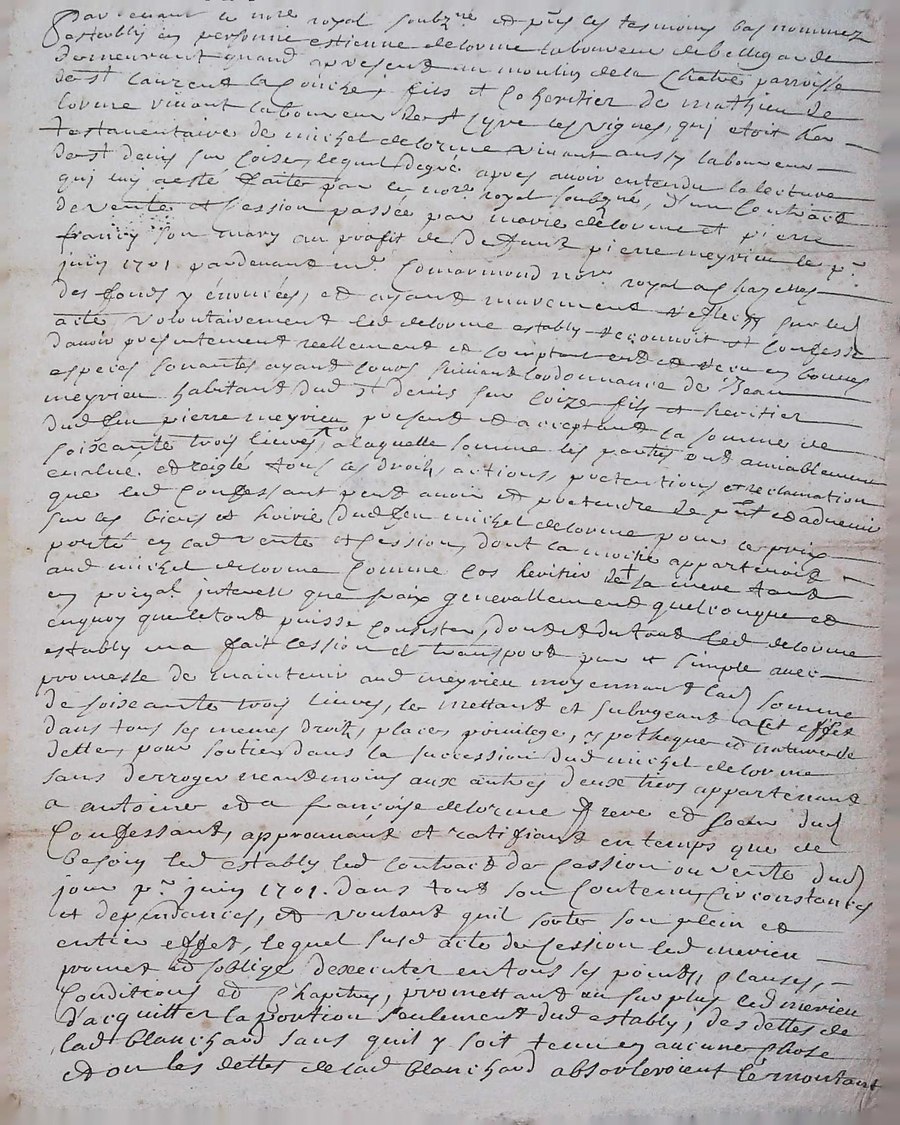 Pardevant le no.re royal soubz.né et p.ns les tesmoins bas nommez
estably en personne estienne delorme laboureur de bellegarde
demeurant quand apresent au moulin de la Chatre parroisse
de st laurent la Conche, fils et Coheritier de mathieu de
lorme vivant laboureur de st Cyre les vignes, qui etoit her
testamentaire de michel delorme vivant aussy laboureur
de st denis sur Coise, lequel de gré apres avoir entendu la lecture
qui luy a esté faite par le no.re royal soubzné, d'un Contract
de vente et Cession passée par marie delorme et pierre
francy son mary au profit de Deffunt pierre meyrieu le p.r
juin 1701 pardevant m.e no.re royal a Chazelles
des fonds y énoncés, et ayant murement reflechy sur led
acte, volontairement led delorme estably reconnoit et Confesse
davoir presentement reellement et comptant eu et receu en bonnes
especes sonantes ayant cours suivant lordonnance de Jean
meyrieu habitant dud st denis sur Coize fils et heritier
dud feu pierre meyrieu present et acceptant la somme de
soiseante trois livres, a laquelle somme les parties ont amiablement
evalué et reiglé tous les droits, actions, pretentions et reclamation
que led Confessant peut avoir et pretendre de p.nt et advenir
sur les biens et hoirie dud feu michel delorme pour le prix
porté en lad vente et Cession, dont la moitié appartenoit
aud michel delorme Comme Cos heritier de + sa mere tant
en prinpal interest que fraix generallement quelconque et
enquoy que le tout puisse Consister, dont et du tout led delorme
estably en a fait cession et transport pur et simple avec
promesse de maintenir aud meyrieu moyennant lad somme
de soiseante trois livres, le mettant et subrogeant a cet effet
dans tous ses memes droits, places privilege, ypotheque et nature de
dettes, pour sortir dans la succession dud michel delorme
sans derroger neaudmoins aux autres deux tiers appartenant
a antoine et a françoise delorme frere et soeur dud
Confessant, approuvant et ratifiant en temps que de
besoin led estably led contract de Cession ou vente dud
jour p.r juin 1701. dans tout son Contenu, Circonstances
et dependances, et voulant quil sorte son plein et
entier effet, lequel susd acte de Cession led merieu
promet et soblige dexecuter en tous ses points, Clauses,
Conditions et Chapitres, promettant au surplus led merieu
d'acquitter la portion seulement dud estably, des dettes de
lad blanchard sans quil y soit tenu en aucune Chose
et ou les dettes de lad blanchard absorberoient le montant